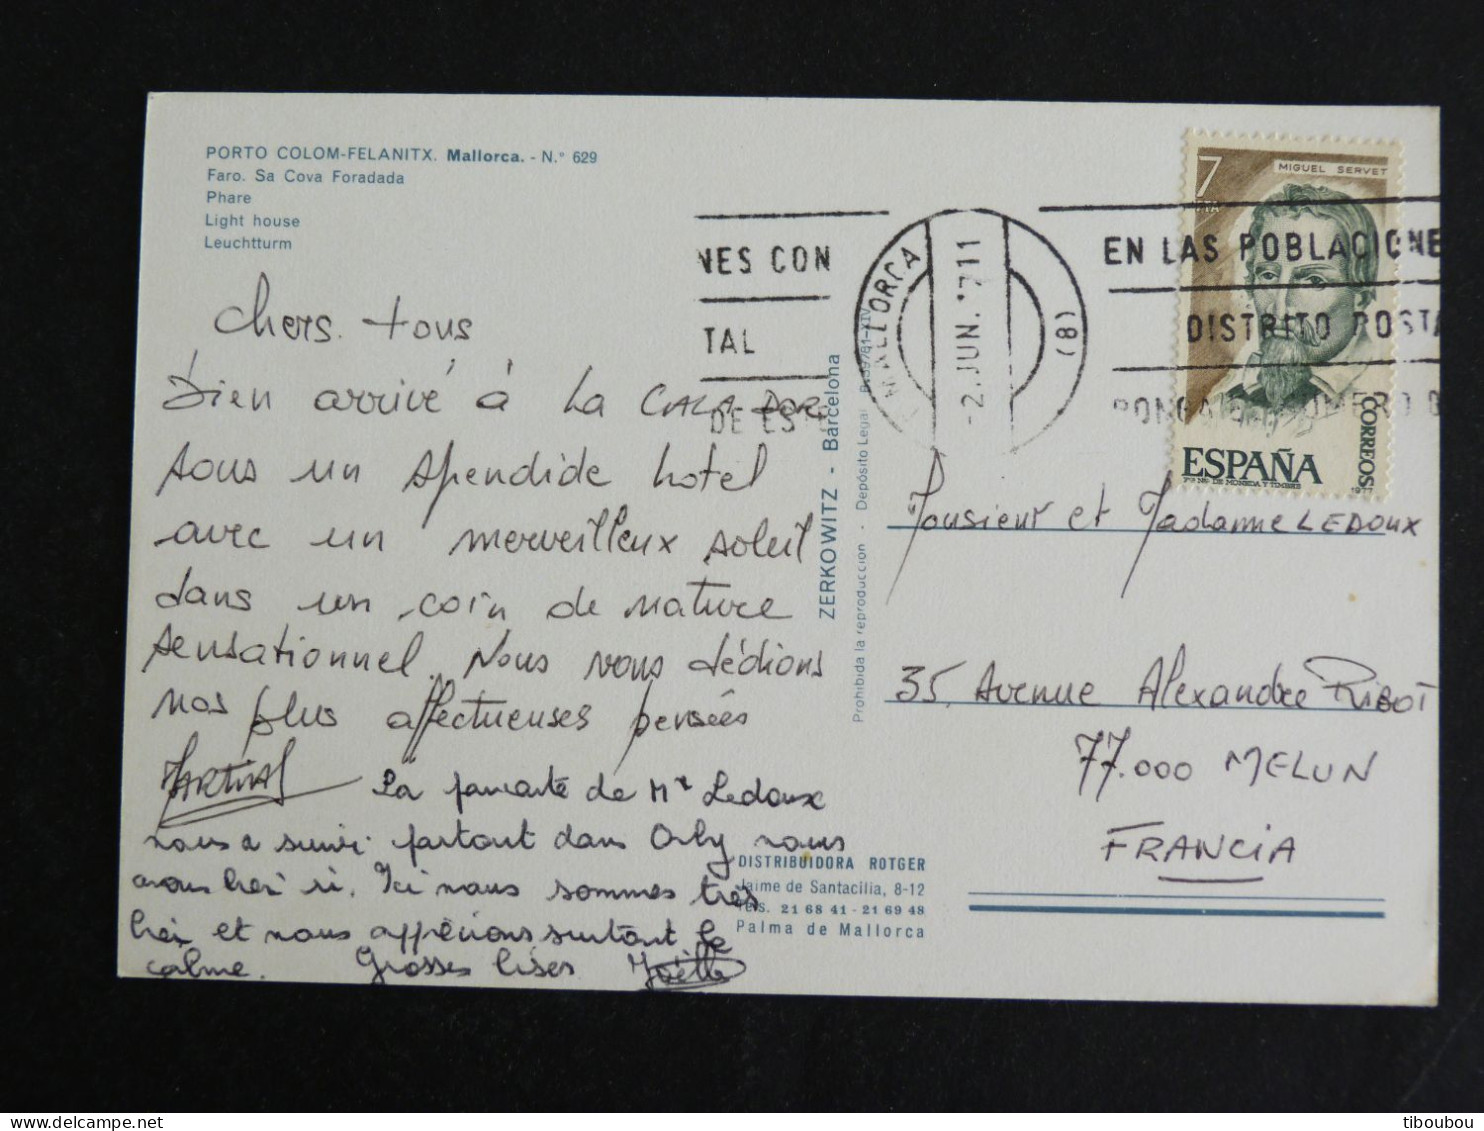 PORTO COLOM-FELANITX. Mallorca. - N.° 629
Faro. Sa Cova Foradada
Phare
Light house
Leuchtturm
Chers tous
bien arrivé à la CALA DOR
sous un spendide hotel
avec un merveilleux soleil
dans un coin de nature
sensationnel. Nous vous dédions
nos plus affectueuses pensées
MARTIAL
La pancarte de Mr Ledoux
nous a suivi partout dans Orly nous
avons bien ri. Ici nous sommes très
bien et nous apprécions surtout le
calme. Grosses bises Joëlle
ZERKOWITZ - Barcelona
Prohibida la reproduccion - Depósito Legal
DISTRIBUIDORA ROTGER
Jaime de Santacilia, 8-12
Tels. 21 68 41 - 21 69 48
Palma de Mallorca
NES CON
TAL
DE ESTE
MALLORCA
-2.JUN.'77 11
(8)
EN LAS POBLACIONE
DISTRITO POSTA
PONGA NUMERO
7
PTA
MIGUEL SERVET
CORREOS
ESPAÑA
1977
Monsieur et Madame LEDOUX
35, Avenue Alexandre RIBOT
77.000 MELUN
FRANCIA
tiboubou